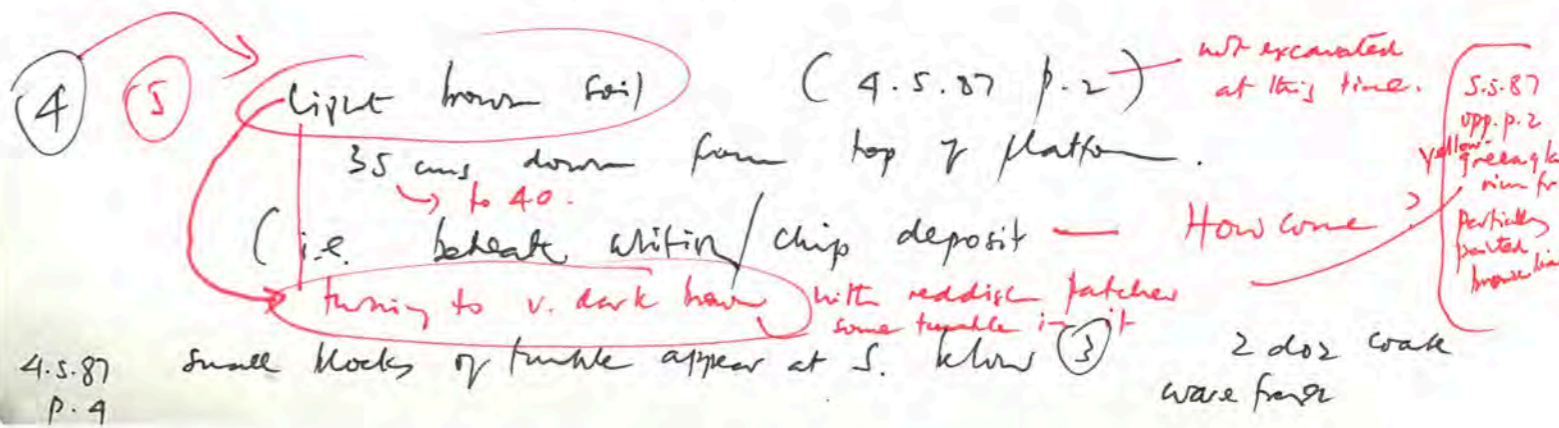 ④ ⑤ light brown soil (4.5.87 p.2) — not excavated
at this time.
35 cms down from top of platform.
→ to 40.
(i.e. beneath whitish/chip deposit — How come?
turning to v. dark brown with reddish patches
some tumble in it
4.5.87 small blocks of tumble appear at S. below ③ 2 doz coarse
p.4 ware frags
5.5.87
opp. p.2
yellow-
green
rim
partially
painted
brown